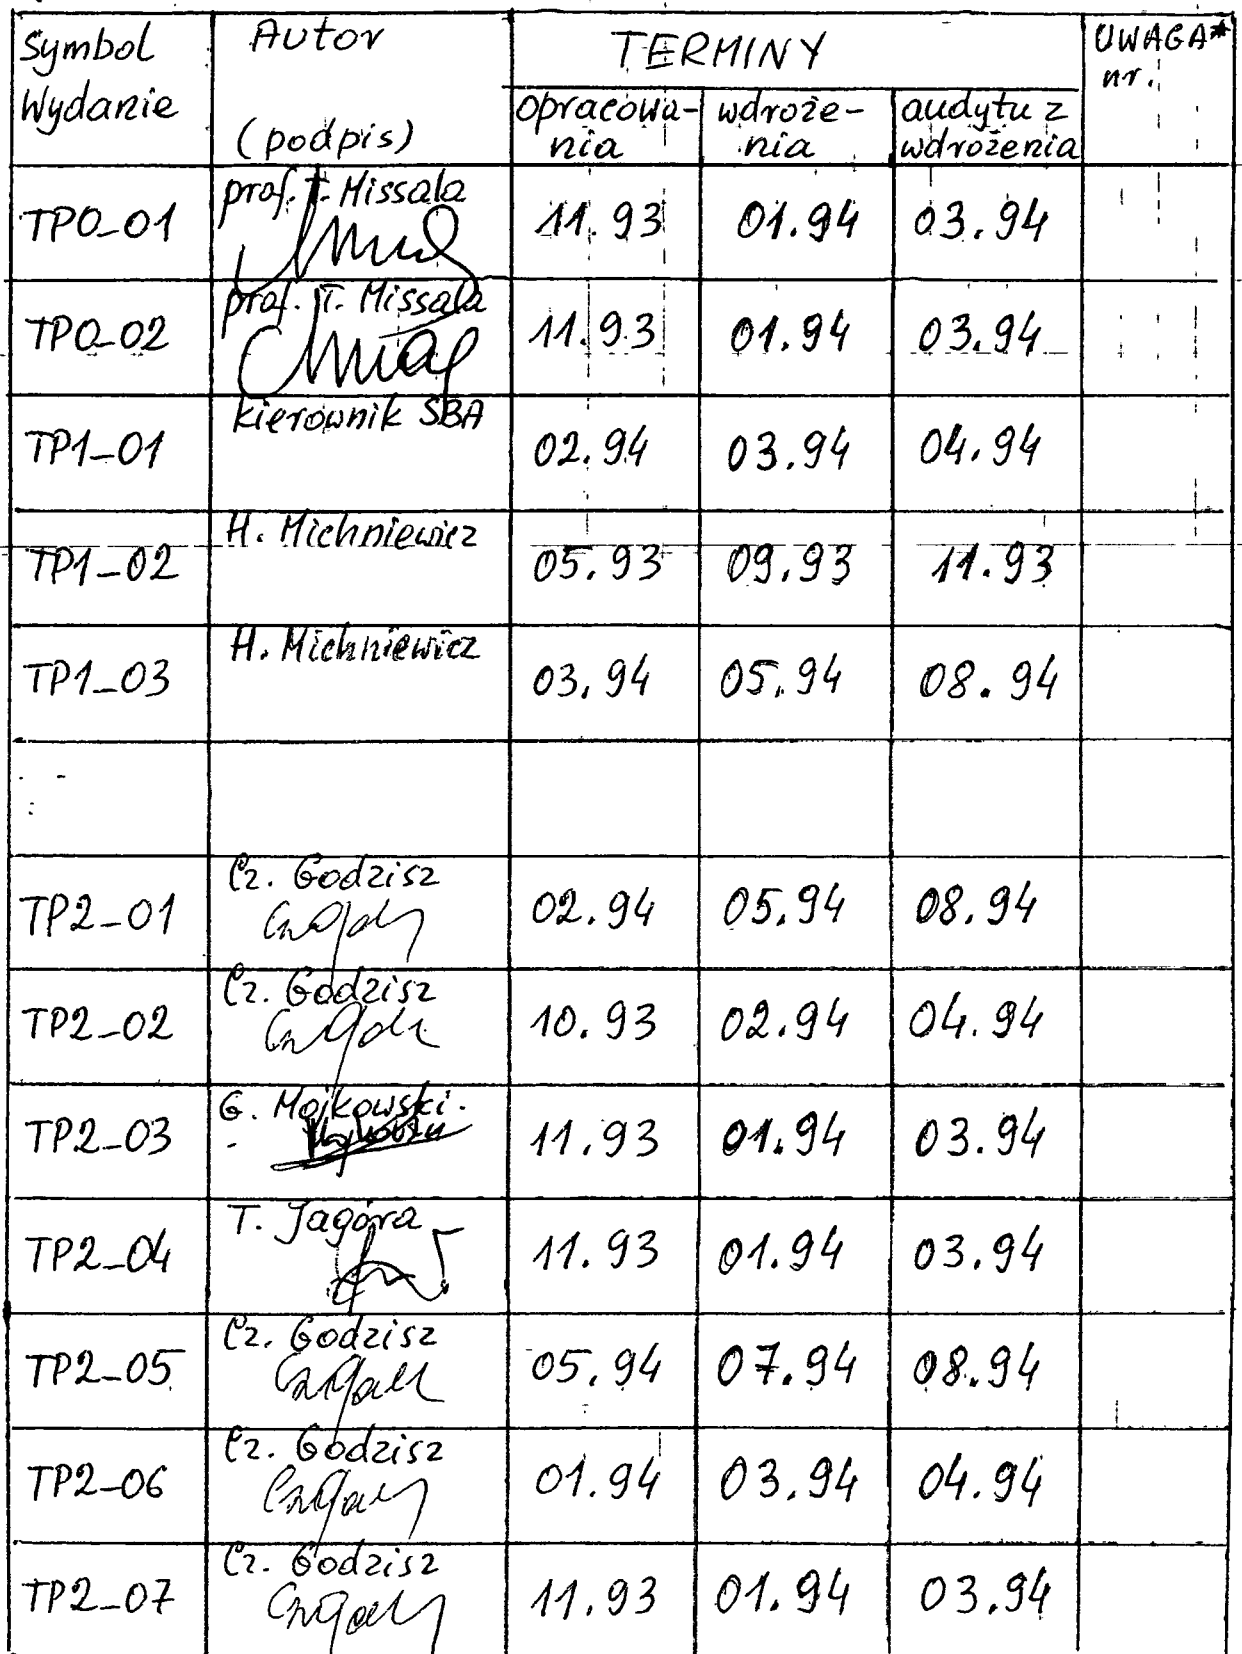 Symbol Wydanie | Autor (podpis) | TERMINY | UWAGA* nr.
opracowa- nia | wdroże- nia | audytu z wdrożenia
TP0-01 | prof. T. Missala | 11.93 | 01.94 | 03.94
TP0-02 | prof. T. Missala | 11.93 | 01.94 | 03.94
TP1-01 | kierownik SBA | 02.94 | 03.94 | 04.94
TP1-02 | H. Michniewicz | 05.93 | 09.93 | 11.93
TP1-03 | H. Michniewicz | 03.94 | 05.94 | 08.94
TP2-01 | Cz. Godzisz | 02.94 | 05.94 | 08.94
TP2-02 | Cz. Godzisz | 10.93 | 02.94 | 04.94
TP2-03 | G. Mojkowski. | 11.93 | 01.94 | 03.94
TP2-04 | T. Jagóra | 11.93 | 01.94 | 03.94
TP2-05 | Cz. Godzisz | 05.94 | 07.94 | 08.94
TP2-06 | Cz. Godzisz | 01.94 | 03.94 | 04.94
TP2-07 | Cz. Godzisz | 11.93 | 01.94 | 03.94